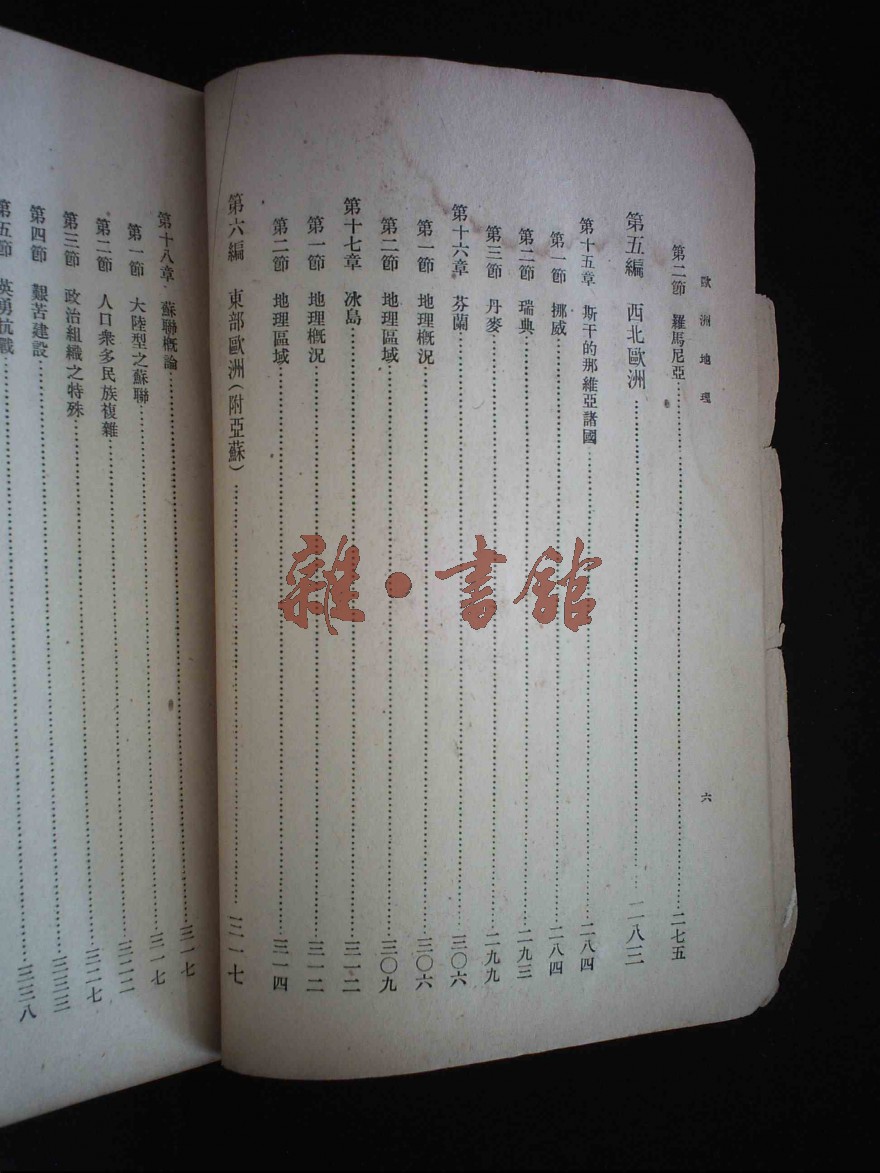 歐洲地理
六
第二節 羅馬尼亞……二七五
第五編 西北歐洲……二八三
第十五章 斯干的那維亞諸國……二八四
第一節 挪威……二八四
第二節 瑞典……二九三
第三節 丹麥……二九九
第十六章 芬蘭……三〇六
第一節 地理概況……三〇六
第二節 地理區域……三〇九
第十七章 冰島……三一二
第一節 地理概況……三一二
第二節 地理區域……三一四
第六編 東部歐洲(附亞蘇)……三一七
第十八章 蘇聯概論……三一七
第一節 大陸型之蘇聯……三一七
第二節 人口衆多民族複雜……三二二
第三節 政治組織之特殊……三二七
第四節 艱苦建設……三三三
第五節 英勇抗戰……三三八
雜·書館